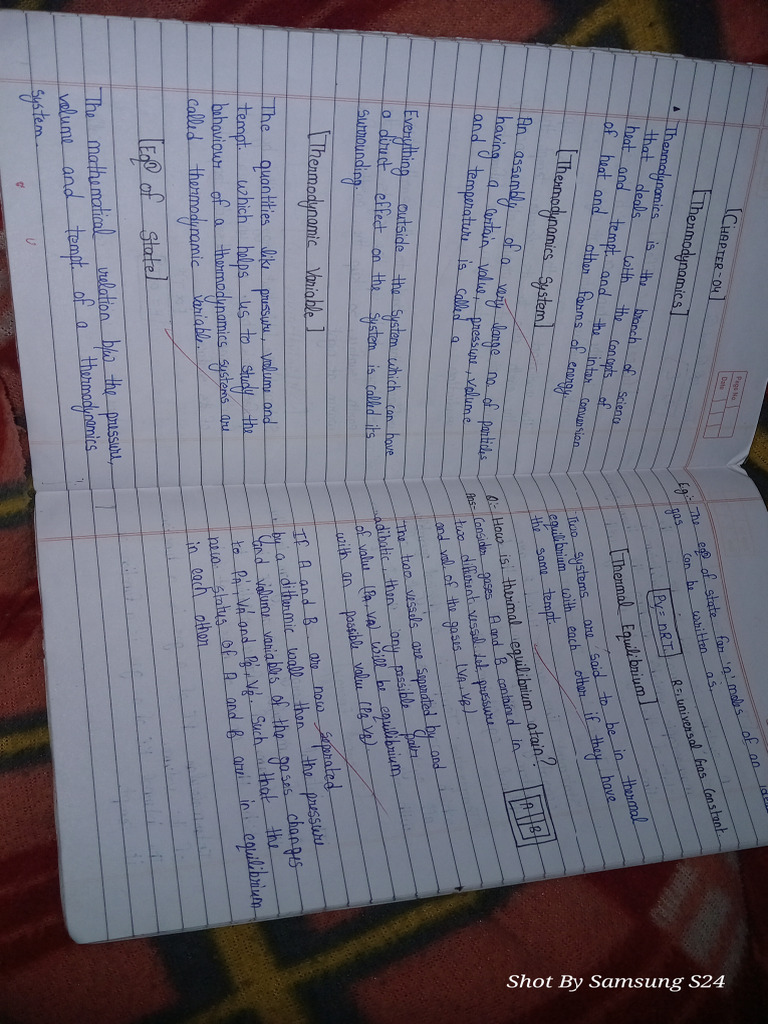 [CHAPTER-04]
Page No.
Date
[Thermodynamics]
Thermodynamics is the branch of science
that deals with the concepts of
heat and tempt and the inter conversion
of heat and other forms of energy
[Thermodynamics System]
An assembly of a very large no. of particles
having a certain value, pressure, volume
and temperature is called a
Everything outside the system which can have
a direct effect on the system is called its
surrounding.
[Thermodynamic Variable]
The quantities like pressure, volume and
tempt. which helps us to study the
behaviour of a thermodynamics systems are
called thermodynamic variable.
[Eqn of State]
The mathematical relation b/w the pressure,
volume and tempt of a thermodynamics
system.
Eg:- The eqn of state for 'n' moles of an
gas can be written as.
PV = nRT R = universal Gas Constant
[Thermal Equilibrium]
Two systems are said to be in thermal
equilibrium with each other if they have
the same tempt.
Q:- How is thermal equilibrium atain?
Ans- Consider gases A and B contained in
two different vessel let pressure
and vol of the gases (VA, VB)
A B
The two vessels are seperated by and
adibatic then any possible pair
of value (PA, VA) will be equilibrium
with an possible value (PB VB)
If A and B are now seperated
by a dithermic wall then the pressure
and volume variables of the gases changes
to PA', VA' and PB', VB'. Such that the
new states of A and B are in equilibrium
in each other
Shot By Samsung S24